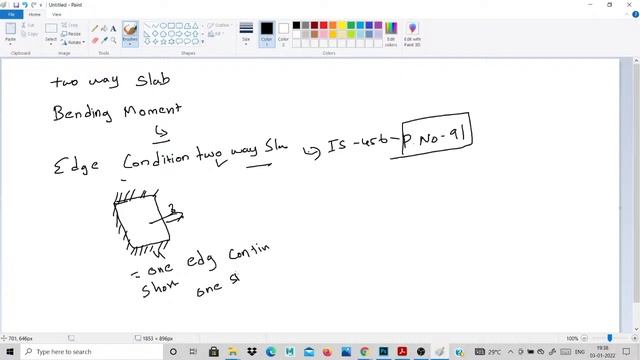 Untitled - Paint
File Home View
Paste
Cut
Copy
Clipboard
Select
Crop
Resize
Rotate
Image
Tools
Brushes
Shapes
Outline
Fill
Size
Color 1
Color 2
Colors
Edit colors
Edit with Paint 3D
two way slab
Bending Moment
Edge Condition two way Sla IS -456- P. No - 91
= one edg contin
Short one s
701, 646px
1853 × 896px
100%
Type here to search
29°C
ENG
19:38
03-01-2022